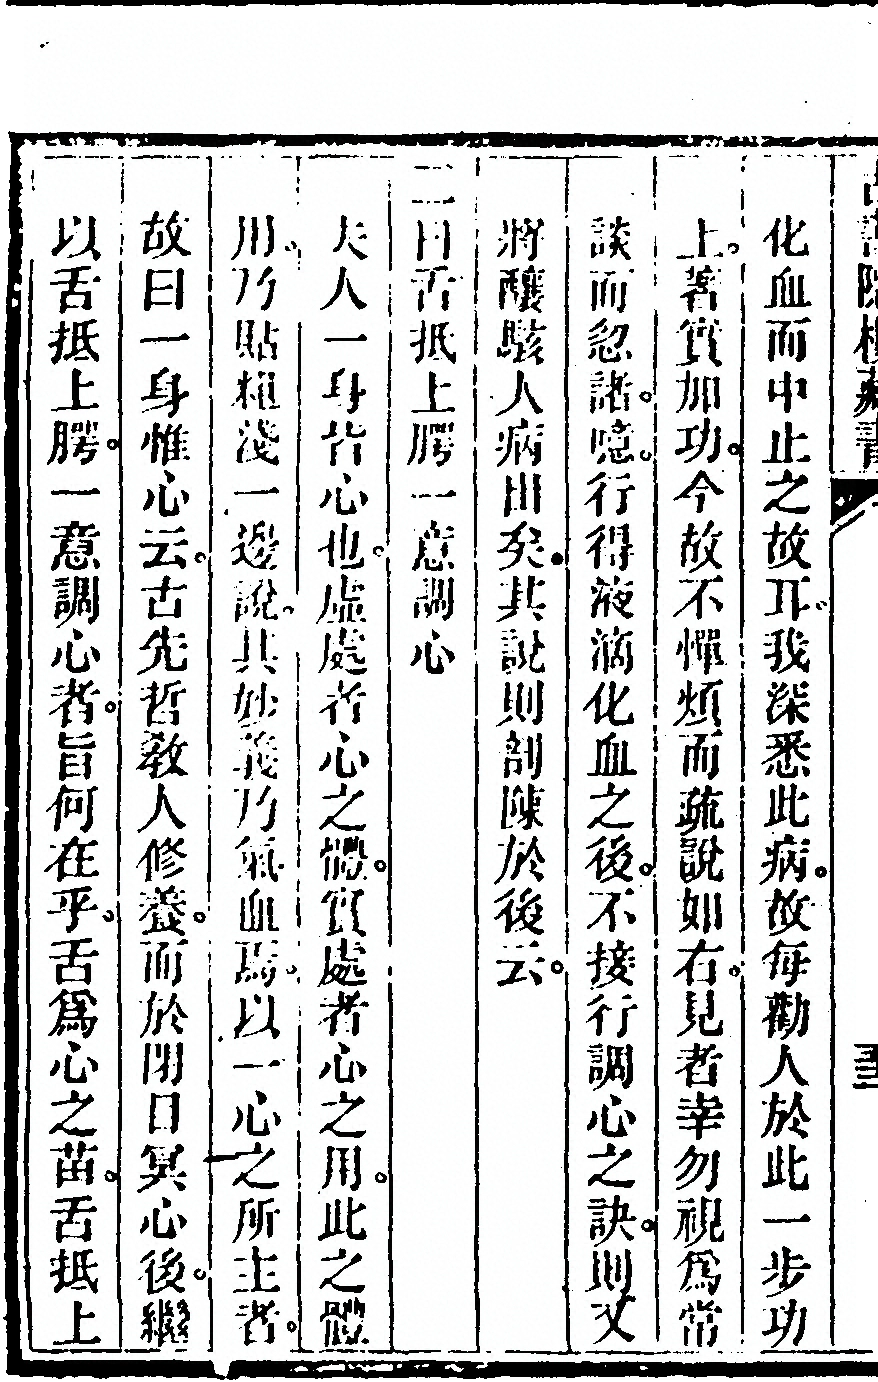 古書隱樓藏書
化血而中止之故耳我深悉此病故每勸人於此一步功
上著實加功今故不憚煩而疏說如右見者幸勿視為常
談而忽諸噫行得液滴化血之後不接行調心之訣則又
將釀駭人病出矣其說則剖陳於後云
二曰舌抵上腭一意調心
夫人一身皆心也虛處者心之體實處者心之用此之體
用乃貼粗淺一邊說其妙義乃氣血焉以一心之所主者
故曰一身惟心云古先哲敎人修養而於閉目冥心後繼
以舌抵上腭一意調心者旨何在乎舌爲心之苗舌抵上